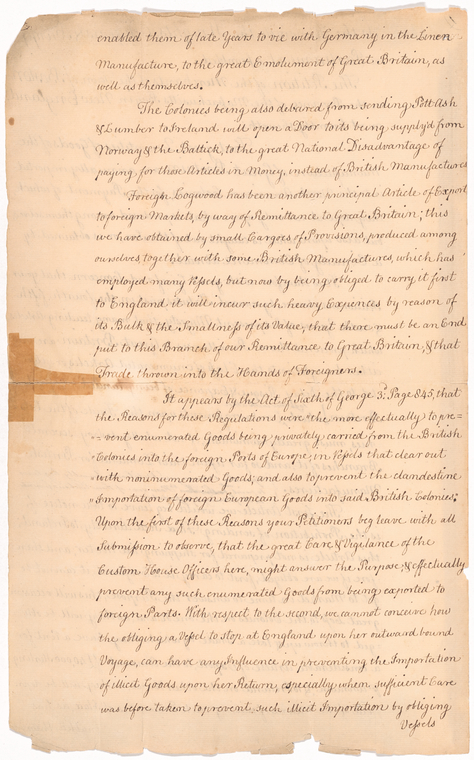 enabled them of late Years to vie with Germany in the Linen
Manufacture, to the great Emolument of Great Britain, as
well as themselves.
The Colonies being also debared from sending Pott Ash
& Lumber to Ireland will open a Door to its being supply'd from
Norway & the Baltick, to the great National Disadvantage of
paying for those Articles in Money, instead of British Manufactures
Foreign Logwood has been another principal Article of Export
to foreign Markets, by way of Remittance to Great Britain; this
we have obtained by small Cargoes of Provisions, produced among
ourselves together with some British Manufactures, which has
employed many Vessels, but now by being obliged to carry it first
to England it will incur such heavy Expences by reason of
its Bulk & the Smallness of its Value, that there must be an End
put to this Branch of our Remittance to Great Britain, & that
Trade thrown into the Hands of Foreigners.
It appears by the Act of Sixth of George 3d. Page 845, that
the Reasons for these Regulations were "the more effectually to pre=
"=vent enumerated Goods being privately carried from the British
"Colonies into the foreign Ports of Europe, in Vessels that clear out
"with noninumerated Goods; and also to prevent the clandestine
"Importation of foreign European Goods into said British Colonies."
Upon the first of these Reasons your Petitioners beg leave with all
Submission to observe, that the great Care & Vigilance of the
Custom House Officers here, might answer the Purpose, & effectually
prevent any such enumerated Goods from being exported to
foreign Parts. With respect to the second, we cannot conceive how
the obliging a Vessel to stop at England upon her outward bound
Voyage, can have any Influence in preventing the Importation
of illicit Goods upon her Return, especially when sufficient Care
was before taken to prevent, such illicit Importation by obliging
Vessels